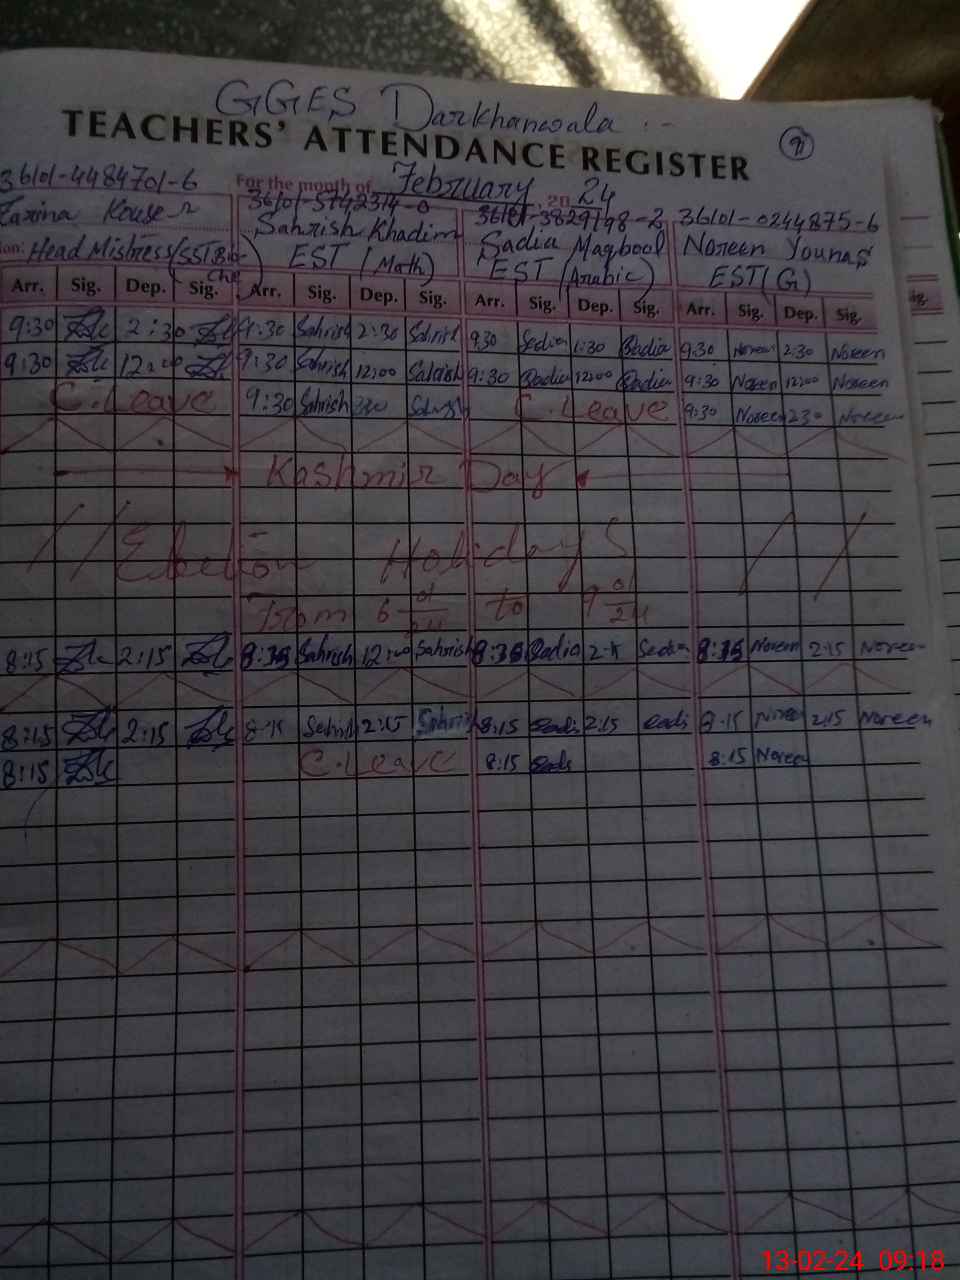 GGES Darkhanwala :-
TEACHERS' ATTENDANCE REGISTER
91
For the month of February 2024
36101-4484701-6 36101-5142314-0 36101-3829198-2 36101-0244875-6
Kouser Sahrish Khadim Sadia Maqbool Noreen Younas
ion: Head Mistress (SST Bio-Che) EST (Math) EST (Arabic) EST (G)
Arr. Sig. Dep. Sig. Arr. Sig. Dep. Sig. Arr. Sig. Dep. Sig. Arr. Sig. Dep. Sig.
ig.
9:30 2:30 9:30 Sahrish 2:30 Sahrish 9:30 Sadia 1:30 Sadia 9:30 Noreen 2:30 Noreen
9:30 12:00 9:30 Sahrish 12:00 Sahrish 9:30 Sadia 12:00 Sadia 9:30 Noreen 12:00 Noreen
C. Leave 9:30 Sahrish 2:30 Sahrish C. Leave 9:30 Noreen 2:30 Noreen
Kashmir Day
Election Holidays
From 6 to 9
8:15 2:15 Sahrish 12:00 Sahrish Sadia 2:15 Sadia Noreen 2:15 Noreen
8:15 2:15 8:15 Sahrish 2:15 Sahrish 8:15 Sadia 2:15 Sadia 8:15 Noreen 2:15 Noreen
8:15 C. Leave 8:15 Sadia 8:15 Noreen
13-02-24 09:18